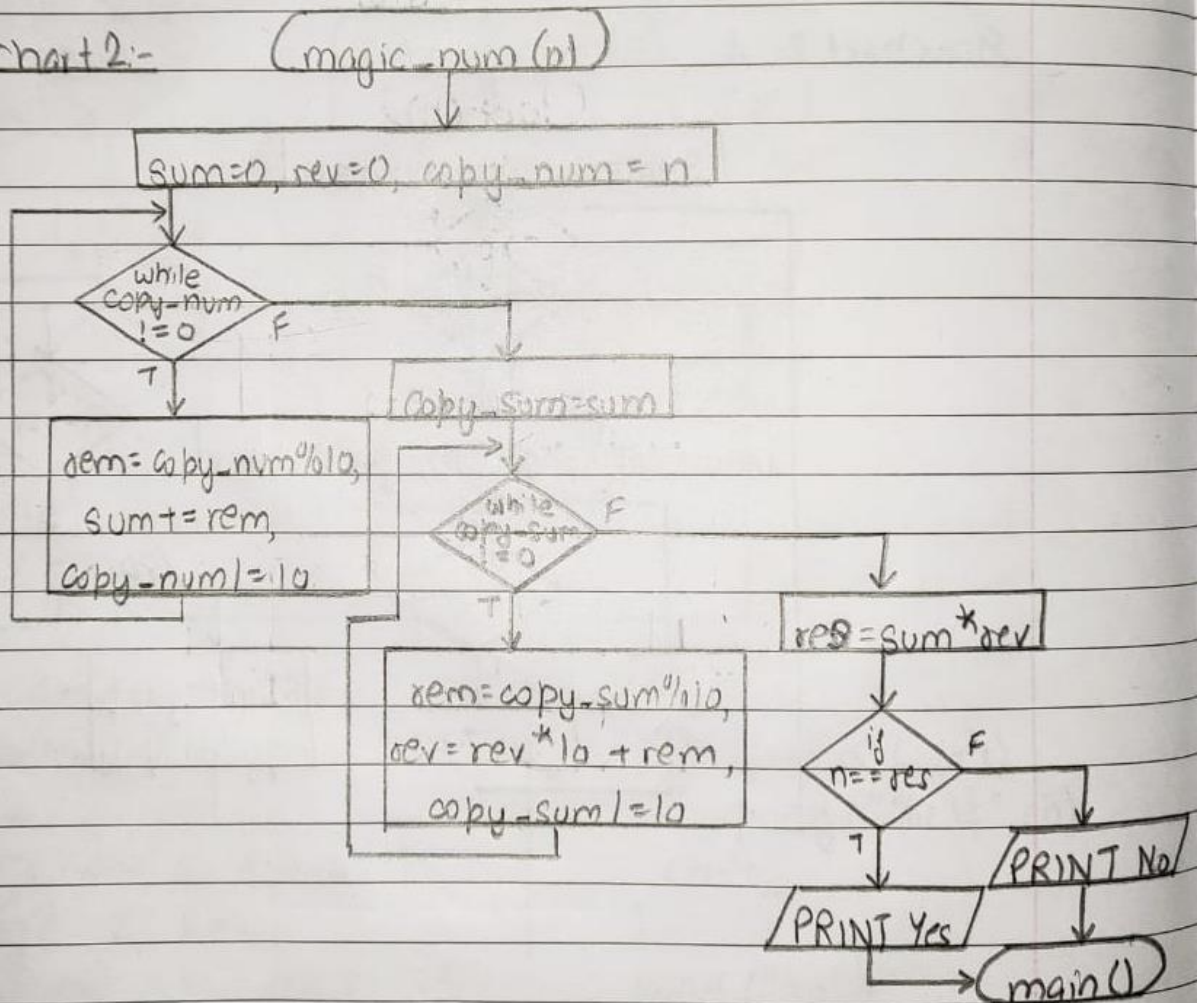 hart 2:-
magic_num (n)
sum=0, rev=0, copy_num = n
while
copy_num
!=0
F
T
rem= copy_num%10,
sum+= rem,
copy_num/=10
copy_sum=sum
while
copy_sum
!=0
F
T
rem=copy_sum%10,
rev=rev*10 + rem,
copy_sum/=10
res=sum*rev
if
n==res
F
T
PRINT No
PRINT Yes
main()